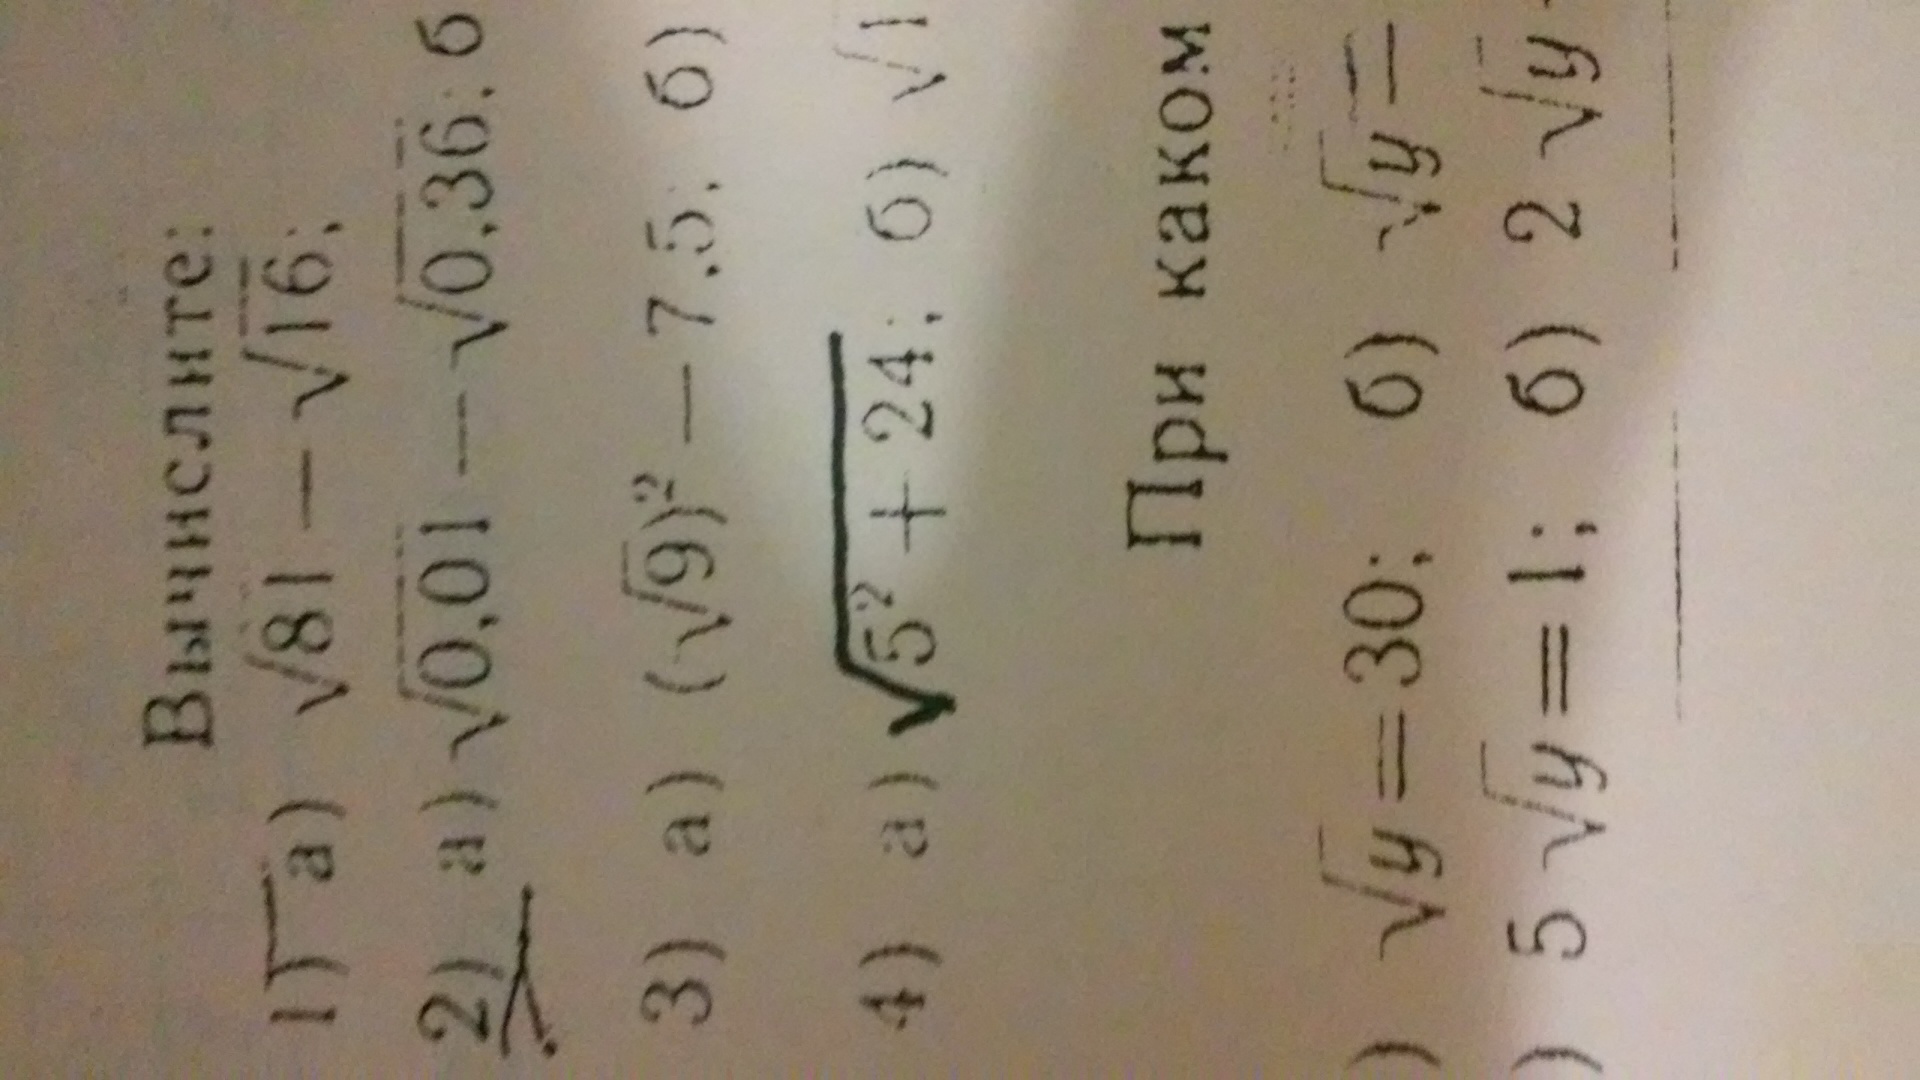 Вычислите:
1) а) √81 − √16;
2) а) √0,01 − √0,36; б
3) а) (√9)² − 7,5; б)
4) а) √5² + 24; б) √1
При каком
) √y = 30; б) √y =
) 5 √y = 1; б) 2 √y